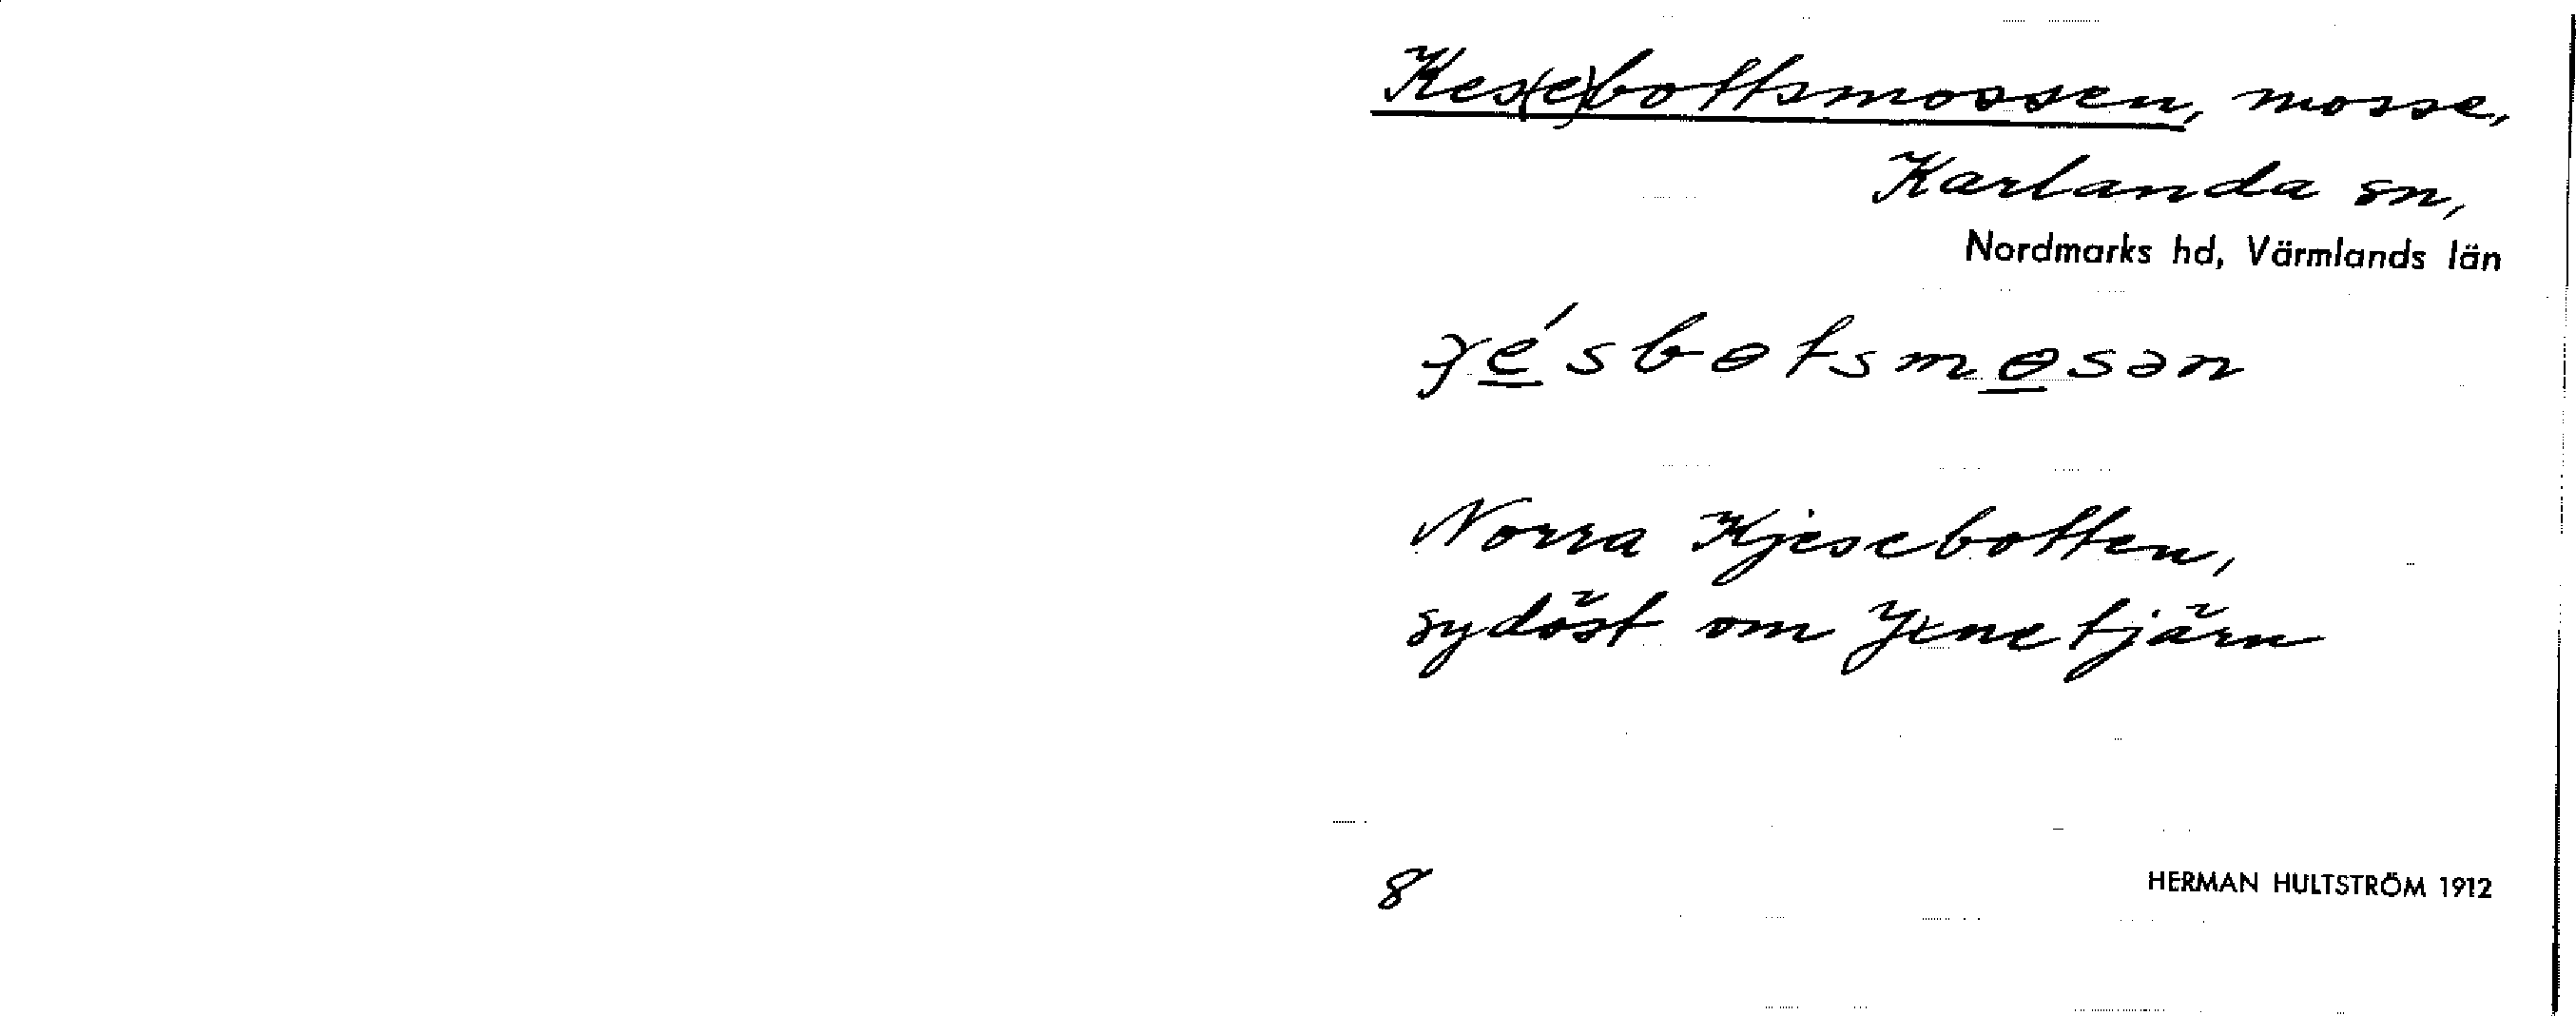 Kes(e)bottsmossen, mosse,
Karlanda sn,
Nordmarks hd, Värmlands län
Norra Kjesebotten,
sydöst om
8
HERMAN HULTSTRÖM 1912